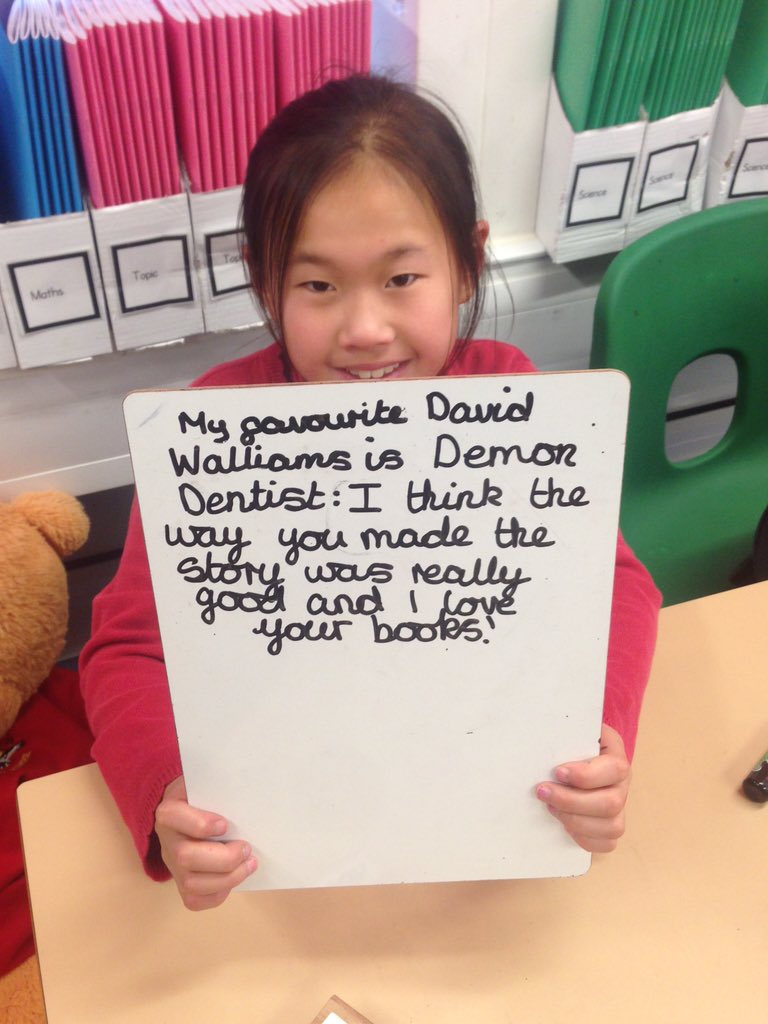 Maths
Topic
Top
Science
Science
Science
My favourite David
Walliams is Demon
Dentist: I think the
way you made the
story was really
good and I love
your books!